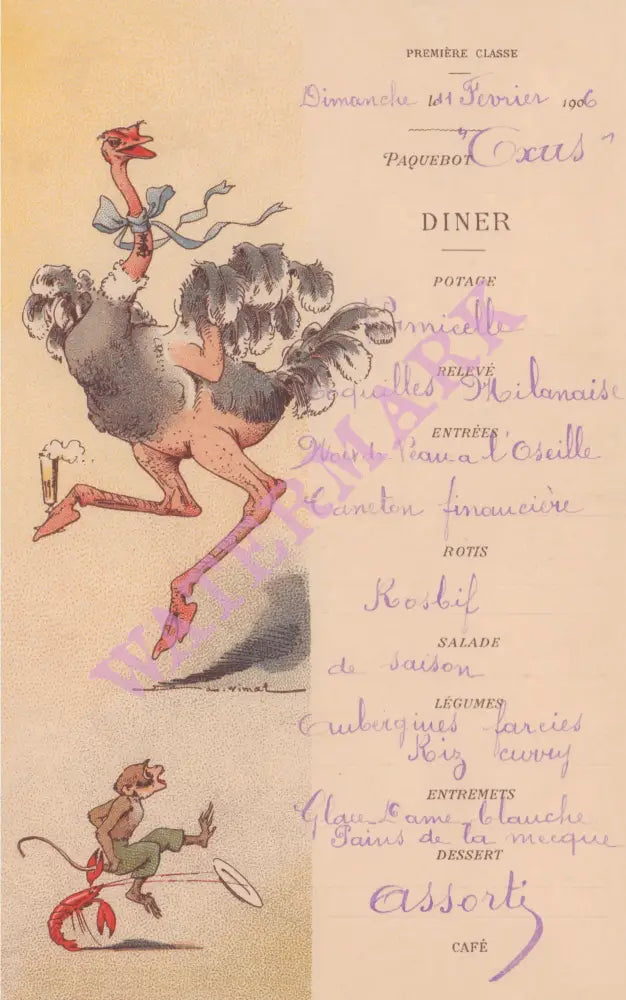 PREMIÈRE CLASSE
Dimanche le 11 Février 1906
PAQUEBOT "Oxus"
DINER
POTAGE
Vermicelle
RELEVÉ
Coquilles Milanaise
ENTRÉES
Noix de Veau a l'Oseille
Caneton financière
ROTIS
Rosbif
SALADE
de saison
LÉGUMES
Aubergines farcies
Riz curry
ENTREMETS
Glace Dame blanche
Pains de la mecque
DESSERT
Assortis
CAFÉ
A. Vimar
WATERMARK